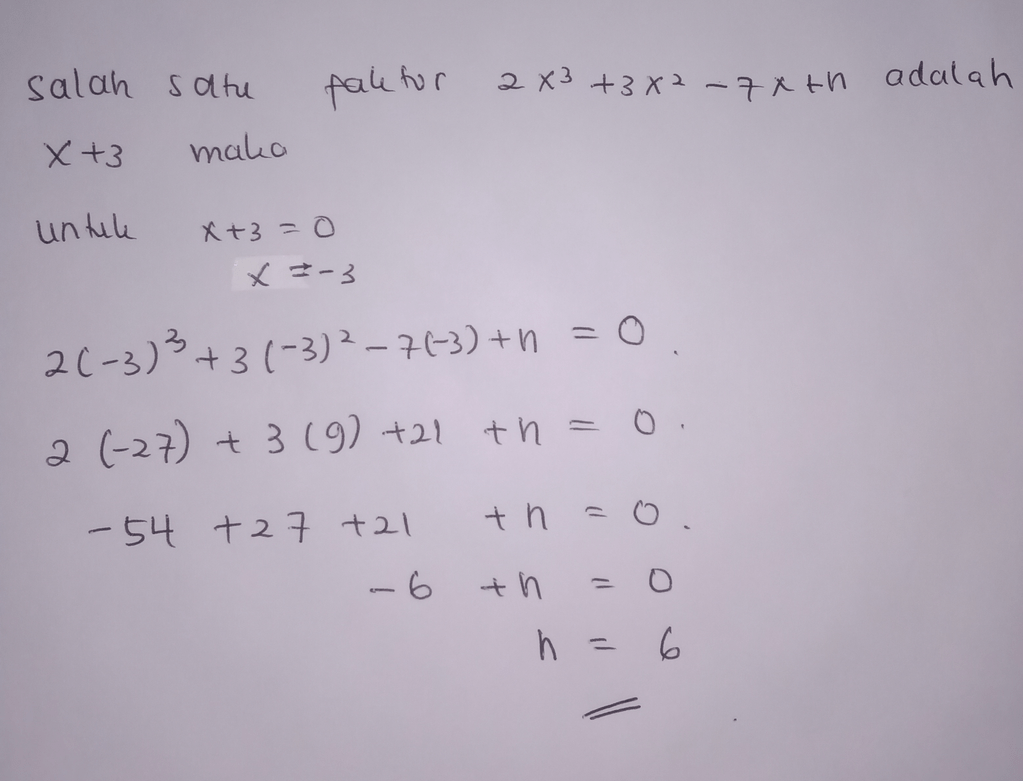 salah satu faktor 2x³ + 3x² - 7x + n adalah
x + 3 maka
untuk x + 3 = 0
x = -3
2(-3)³ + 3(-3)² - 7(-3) + n = 0.
2 (-27) + 3 (9) + 21 + n = 0.
-54 + 27 + 21 + n = 0.
-6 + n = 0
n = 6